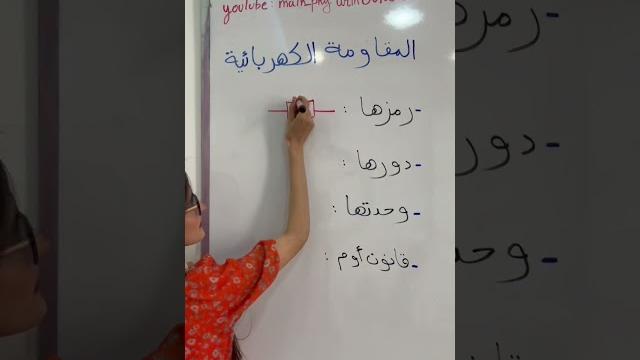 youtube : math.phy with
المقاومة الكهربائية
- رمزها :
- دورها :
- وحدتها :
- قانون أوم :